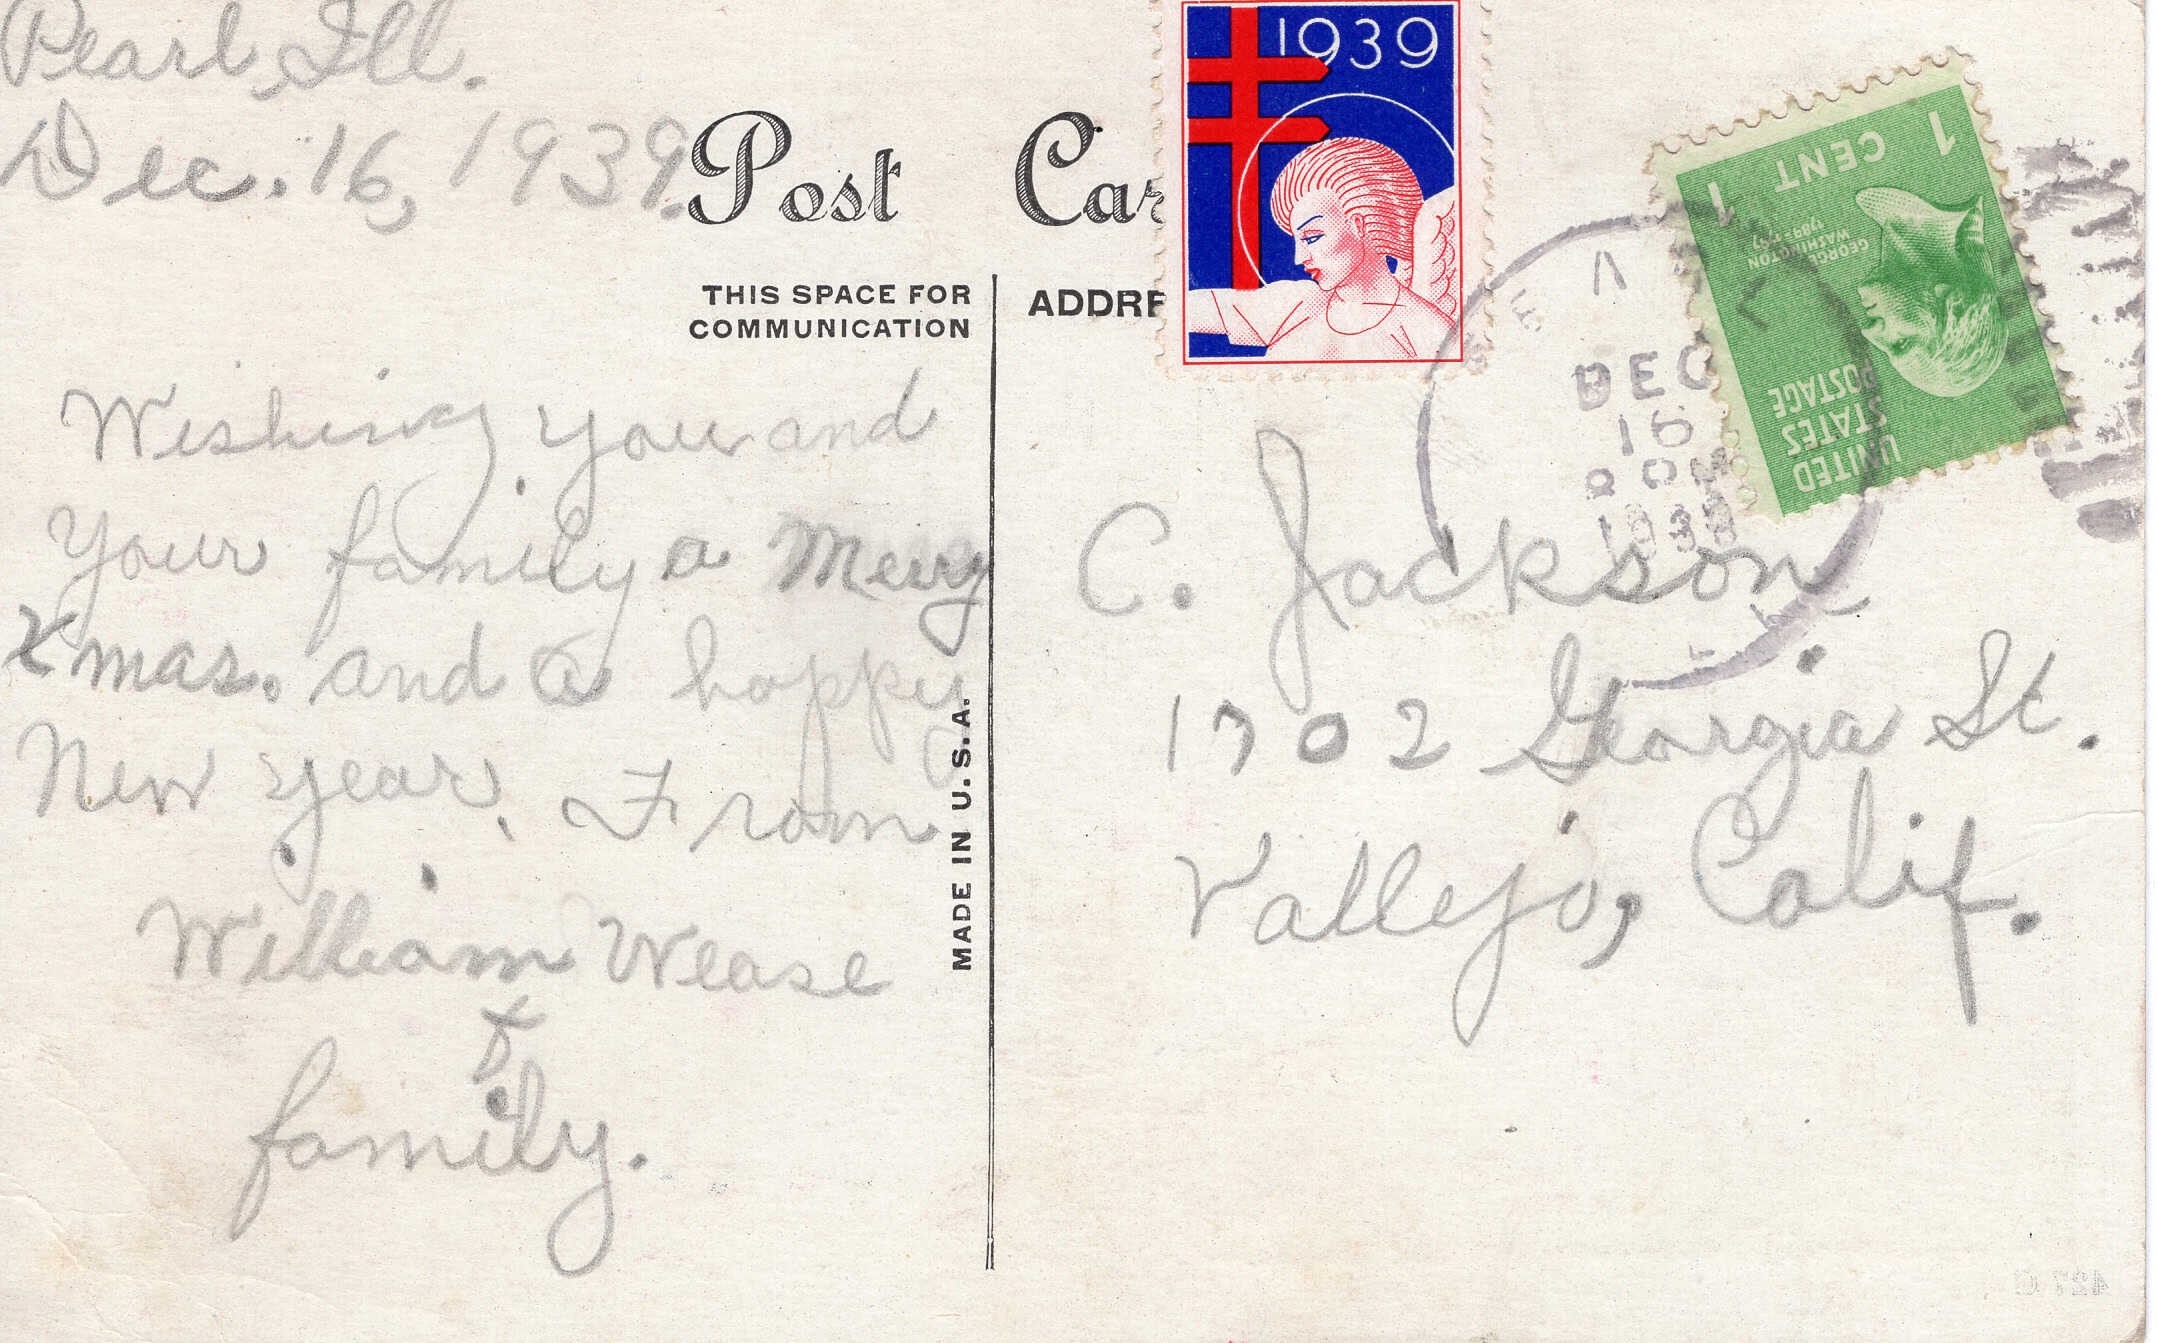 Pearl, Ill.
Dec. 16, 1939.
Post Car
THIS SPACE FOR
COMMUNICATION
ADDRE
Wishing you and
Your family a Merry
Xmas. and a happy
New year. From
William Wease
&
family.
MADE IN U.S.A.
1939
1 CENT 1
GEORGE
WASHINGTON
1789-1797
UNITED
STATES
POSTAGE
PEARL
DEC
16
PM
1939
ILL
C. Jackson
1702 Georgia St.
Vallejo, Calif.